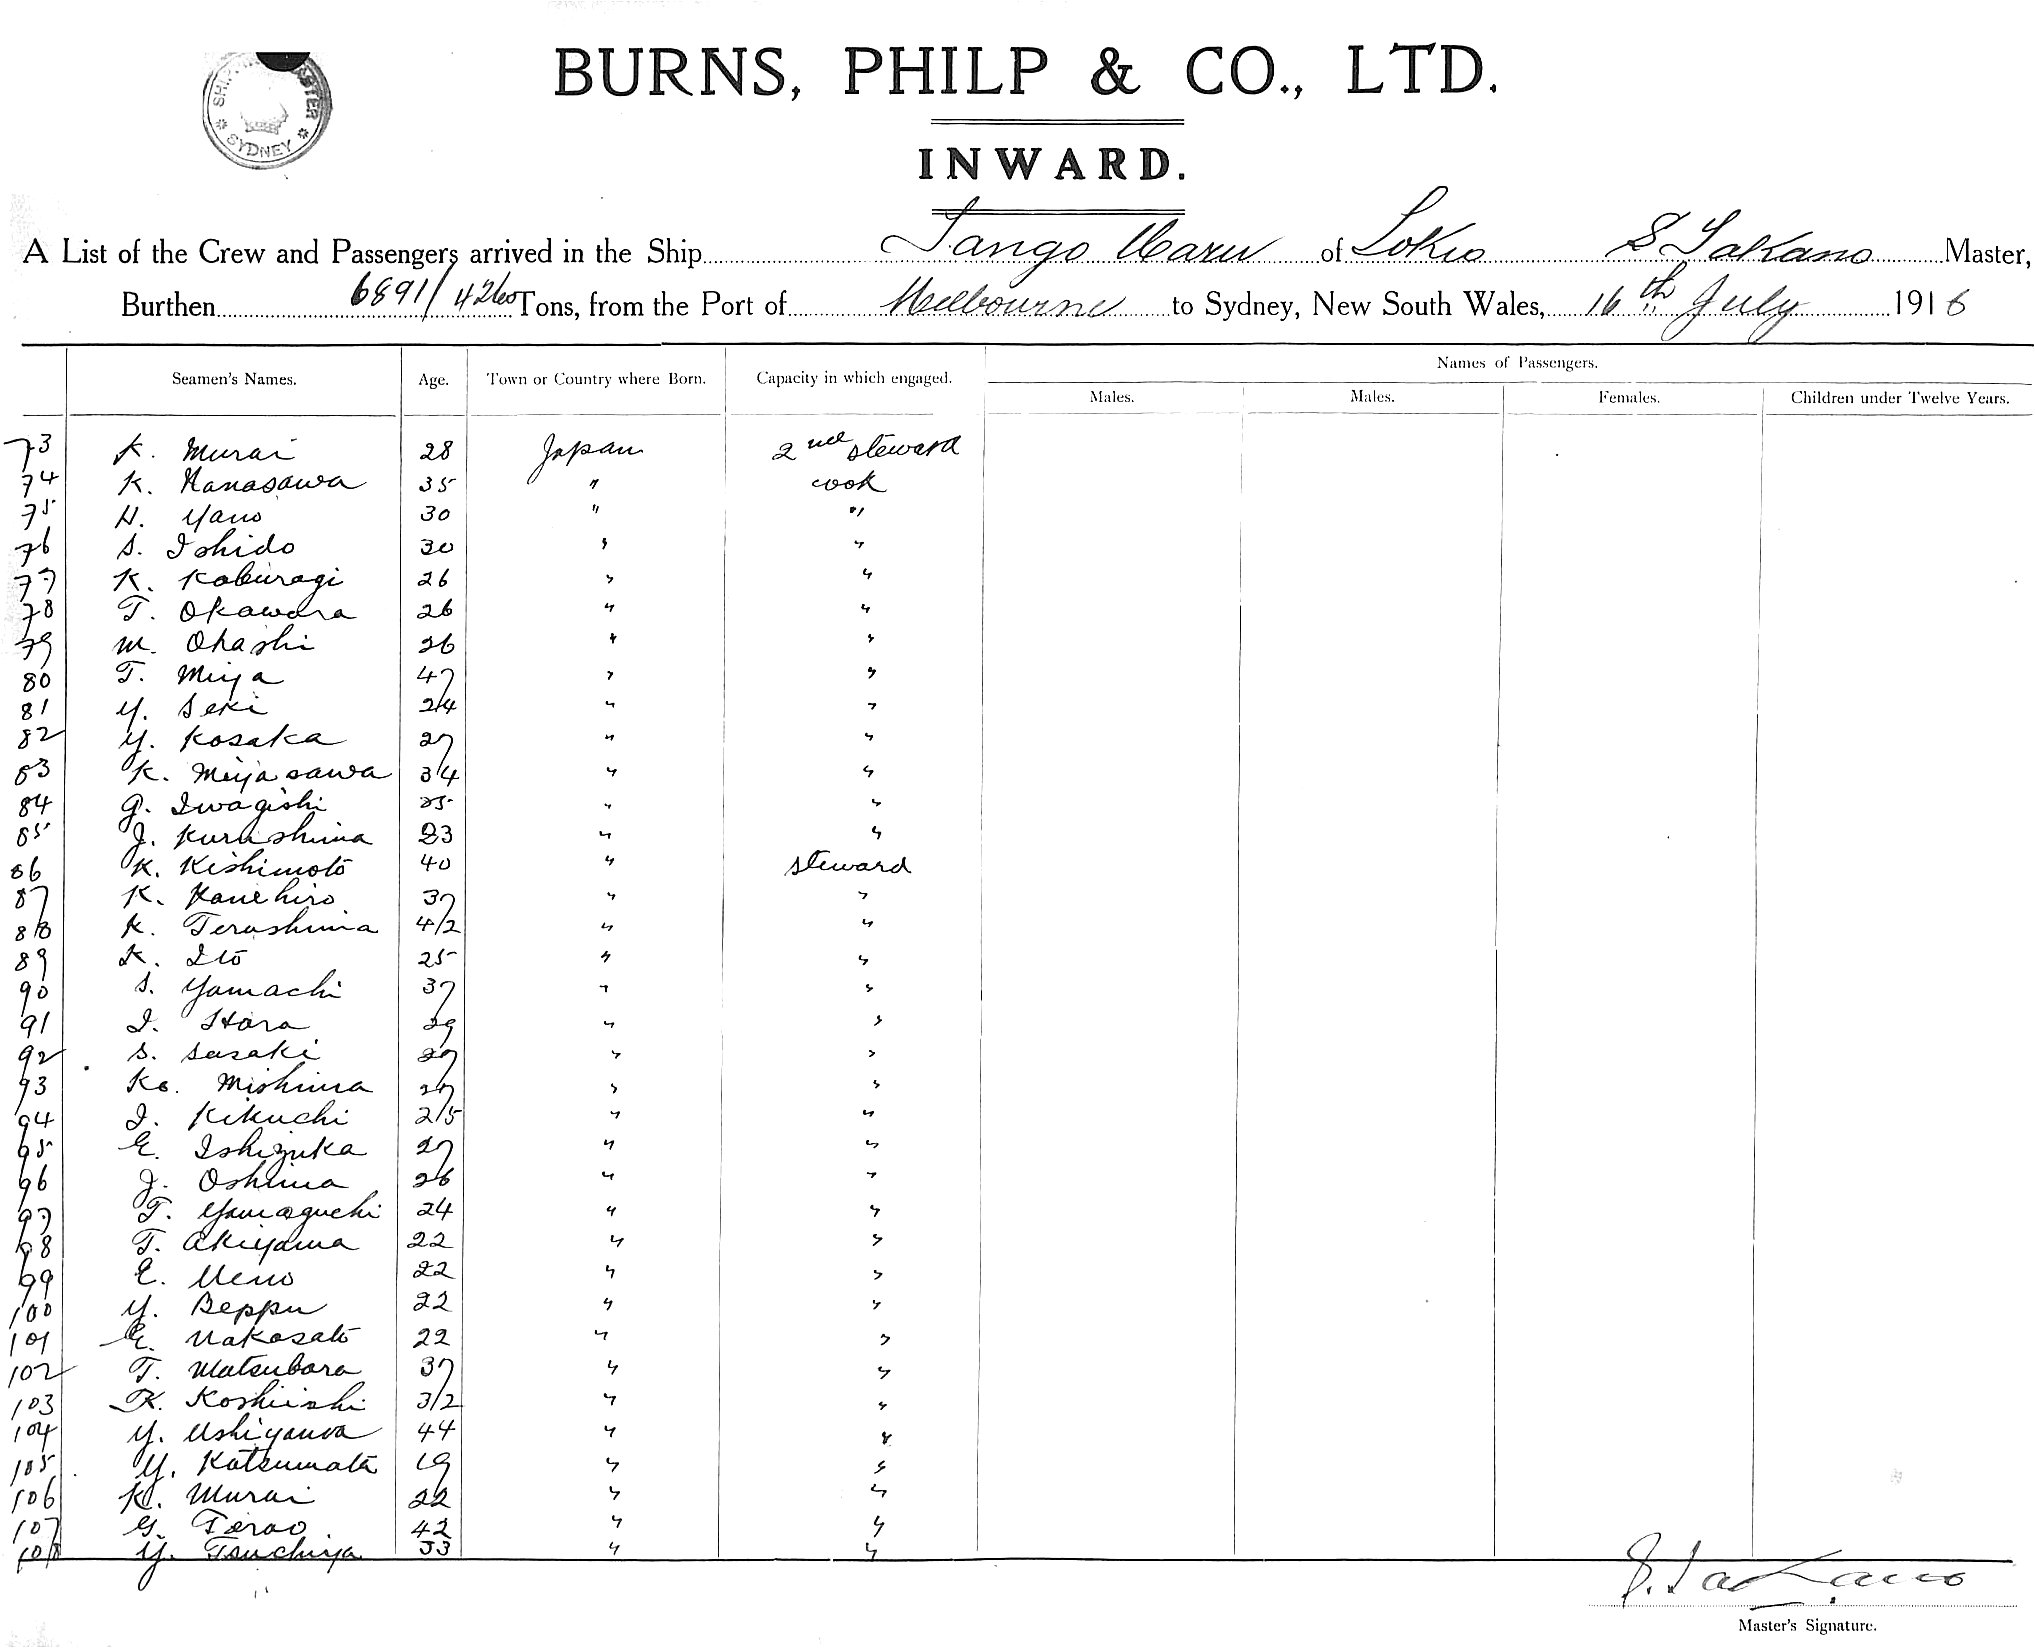 BURNS, PHILP & CO., LTD.
INWARD.
SYDNEY
A List of the Crew and Passengers arrived in the Ship Tango Maru of Tokio S Takano Master,
Burthen 6891/4260 Tons, from the Port of Melbourne to Sydney, New South Wales, 16th July 1916
Names of Passengers.
Seamen's Names. Age. Town or Country where Born. Capacity in which engaged. Males. Males. Females. Children under Twelve Years.
73 K. Murai 28 Japan 2nd steward
74 K. Kanasawa 35 " cook
75 H. Yano 30 " "
76 S. Ishido 30 " "
77 K. Kaburagi 26 " "
78 T. Okawara 26 " "
79 M. Ohashi 26 " "
80 T. Miya 47 " "
81 Y. Seki 24 " "
82 Y. Kosaka 27 " "
83 K. Miyasawa 34 " "
84 G. Iwagishi 25 " "
85 J. Kurushima 23 " "
86 K. Kishimoto 40 " steward
87 K. Kanehiro 37 " "
88 K. Terashima 42 " "
89 K. Ito 25 " "
90 S. Yamachi 37 " "
91 I. Hara 29 " "
92 S. Sasaki 27 " "
93 Ko. Mishima 27 " "
94 I. Kikuchi 25 " "
95 E. Ishizuka 27 " "
96 J. Oshima 26 " "
97 T. Yamaguchi 24 " "
98 T. Akiyama 22 " "
99 E. Ueno 22 " "
100 Y. Beppu 22 " "
101 E. Nakasato 22 " "
102 T. Matsubara 37 " "
103 K. Koshiishi 32 " "
104 Y. Ushiyama 44 " "
105 Y. Katsumata 19 " "
106 K. Murai 22 " "
107 G. Terao 42 " "
108 Y. Tsuchiya 33 " "
S. Takano
Master's Signature.